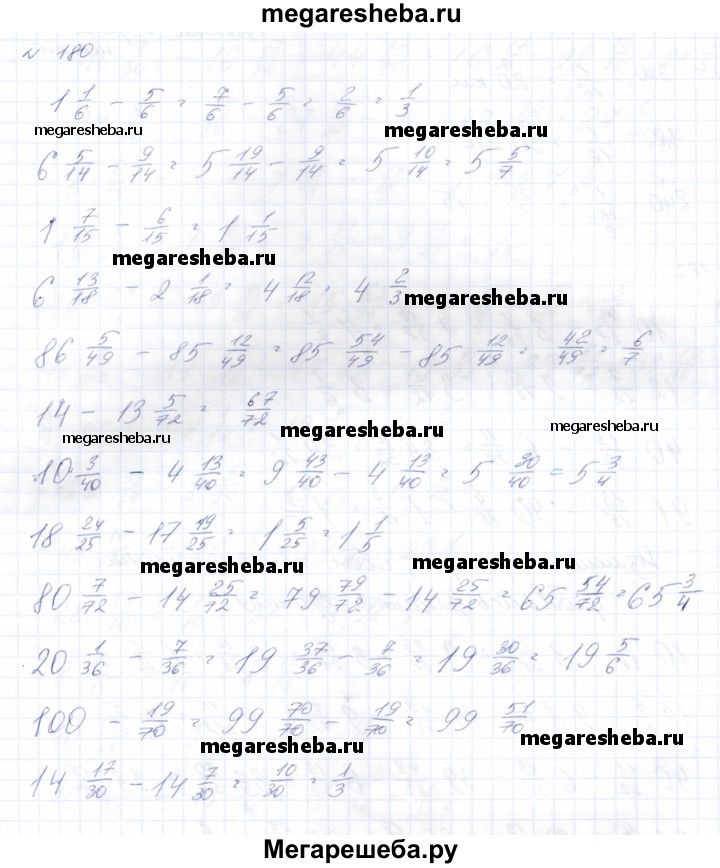 megaresheba.ru
№ 180
1 1/6 - 5/6 = 7/6 - 5/6 = 2/6 = 1/3
megaresheba.ru megaresheba.ru
6 5/14 - 9/14 = 5 19/14 - 9/14 = 5 10/14 = 5 5/7
1 7/15 - 6/15 = 1 1/15
megaresheba.ru
6 13/18 - 2 1/18 = 4 12/18 = 4 2/3
megaresheba.ru
86 5/49 - 85 12/49 = 85 54/49 - 85 12/49 = 42/49 = 6/7
14 - 13 5/72 = 67/72
megaresheba.ru megaresheba.ru megaresheba.ru
10 3/40 - 4 13/40 = 9 43/40 - 4 13/40 = 5 30/40 = 5 3/4
18 24/25 - 17 19/25 = 1 5/25 = 1 1/5
megaresheba.ru megaresheba.ru
80 7/72 - 14 25/72 = 79 79/72 - 14 25/72 = 65 54/72 = 65 3/4
20 1/36 - 7/36 = 19 37/36 - 7/36 = 19 30/36 = 19 5/6
100 - 19/70 = 99 70/70 - 19/70 = 99 51/70
megaresheba.ru megaresheba.ru
14 17/30 - 14 7/30 = 10/30 = 1/3
Мегарешеба.ру